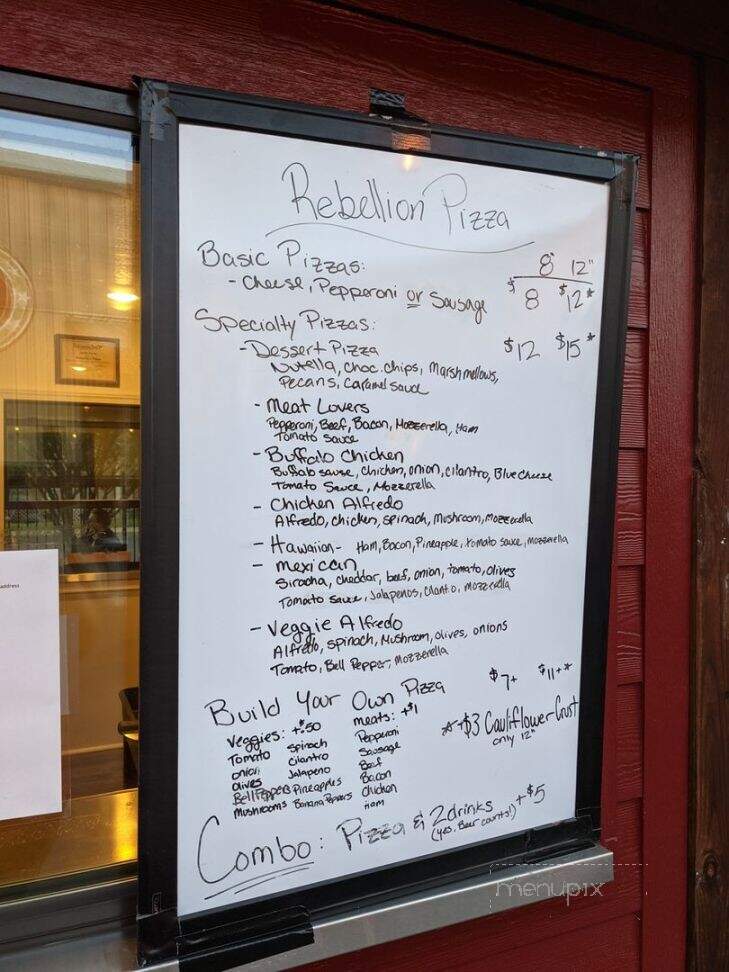 Rebellion Pizza
Basic Pizzas: 8" 12"
- Cheese, Pepperoni or Sausage $8 $12*
Specialty Pizzas:
- Dessert Pizza $12 $15*
Nutella, choc. chips, Marshmellows,
Pecans, Caramel sauce
- Meat Lovers
Pepperoni, Beef, Bacon, Mozzerella, Ham
Tomato sauce
- Buffalo Chicken
Buffalo sause, chicken, onion, cilantro, Blue cheese
Tomato Sauce, Mozzerella
- Chicken Alfredo
Alfredo, chicken, spinach, Mushroom, Mozzerella
- Hawaiian - Ham, Bacon, Pineapple, tomato sauce, mozzerella
- Mexican
Siracha, cheddar, beef, onion, tomato, olives
Tomato sauce, Jalapenos, Cilantro, mozzerella
- Veggie Alfredo
Alfredo, spinach, Mushroom, olives, onions
Tomato, Bell Pepper, Mozzerella
Build Your Own Pizza $7+ $11+*
Veggies: +$.50 meats: +$1
Tomato spinach Pepperoni
onion cilantro Sausage
olives Jalapeno Beef
Bell Peppers Pineapples Bacon
Mushrooms Banana Peppers chicken
Ham
*+$3 Cauliflower Crust
only 12"
Combo: Pizza & 2 drinks +$5
(yes. Beer counts!)
address
menupix